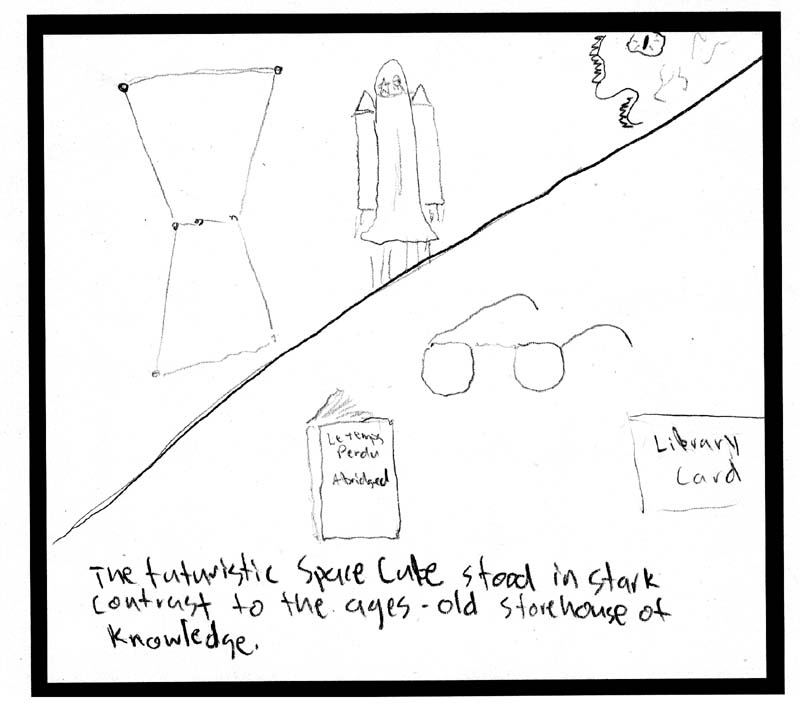 Le Temps
Perdu
Abridged
Library
Card
The futuristic Space stood in stark
contrast to the ages-old storehouse of
Knowledge.